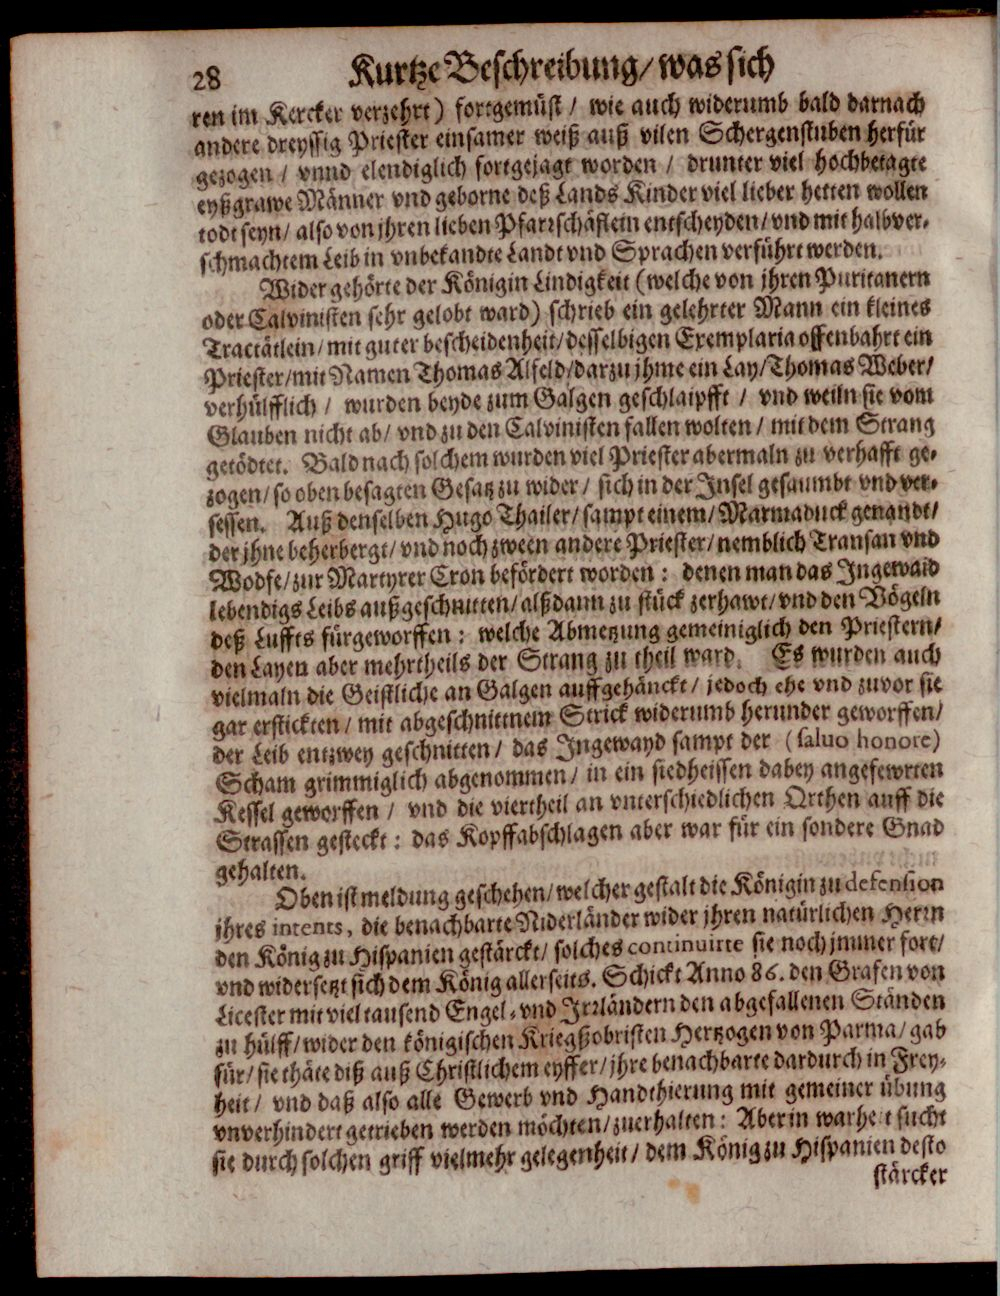 28
Kurtze Beschreibung/ was sich
ren im Kercker verzehrt) fortgemüst / wie auch widerumb bald darnach
andere dreyssig Priester einsamer weiß auß vilen Schergenstuben herfür
gezogen / vnnd elendiglich fortgejagt worden / drunter viel hochbetagte
eyßgrawe Männer vnd geborne deß Lands Kinder viel lieber hetten wollen
todt seyn/ also von jhren lieben Pfarrschäflein entscheyden/ vnd mit halbver-
schmachtem Leib in vnbekandte Landt vnd Sprachen verführt werden.
Wider gehörte der Königin Lindigkeit (welche von jhren Puritanern
oder Calvinisten sehr gelobt ward) schrieb ein gelehrter Mann ein kleines
Tractätlein/ mit guter bescheidenheit/ desselbigen Exemplaria offenbahrt ein
Priester/ mit Namen Thomas Alfeld/ darzu jhme ein Lay/ Thomas Weber/
verhülfflich / wurden beyde zum Galgen geschlaipfft / vnd weiln sie vom
Glauben nicht ab/ vnd zu den Calvinisten fallen wolten / mit dem Strang
getödtet. Bald nach solchem wurden viel Priester abermaln zu verhafft ge-
zogen/ so oben besagten Gesatz zu wider / sich in der Insel gesaumbt vnd ver-
sessen. Auß denselben Hugo Thailer/ sampt einem/ Marmaduck genandt/
der jhne beherbergt/ vnd noch zween andere Priester/ nemblich Transan vnd
Wodfe/ zur Martyrer Cron befördert worden : denen man das Ingewaid
lebendigs Leibs außgeschnitten/ alßdann zu stück zerhawt/ vnd den Vögeln
deß Luffts fürgeworffen : welche Abmetzung gemeiniglich den Priestern/
den Layen aber mehrtheils der Strang zu theil ward. Es wurden auch
vielmaln die Geistliche an Galgen auffgehänckt / jedoch ehe vnd zuvor sie
gar erstickten / mit abgeschnittnem Strick widerumb herunder geworffen/
der Leib entzwey geschnitten / das Ingewayd sampt der (saluo honore)
Scham grimmiglich abgenommen / in ein siedheissen dabey angefewrten
Kessel geworffen / vnd die viertheil an vnterschiedlichen Orthen auff die
Strassen gesteckt : das Kopffabschlagen aber war für ein sondere Gnad
gehalten.
Oben ist meldung geschehen/ welcher gestalt die Königin zu defension
jhres intents, die benachbarte Niderländer wider jhren natürlichen Herrn
den König zu Hispanien gestärckt/ solches continuirte sie noch jmmer fort/
vnd widersetzt sich dem König allerseits. Schickt Anno 86. den Grafen von
Licester mit viel tausend Engel- vnd Irrländern den abgefallenen Ständen
zu hülff/ wider den königischen Kriegßobristen Hertzogen von Parma/ gab
für/ sie thäte diß auß Christlichem eyffer/ jhre benachbarte dardurch in Frey-
heit / vnd daß also alle Gewerb vnd Handthierung mit gemeiner übung
vnverhindert getrieben werden möchten/ zuerhalten : Aber in warheit sucht
sie durch solchen griff vielmehr gelegenheit / dem König zu Hispanien desto
stärcker